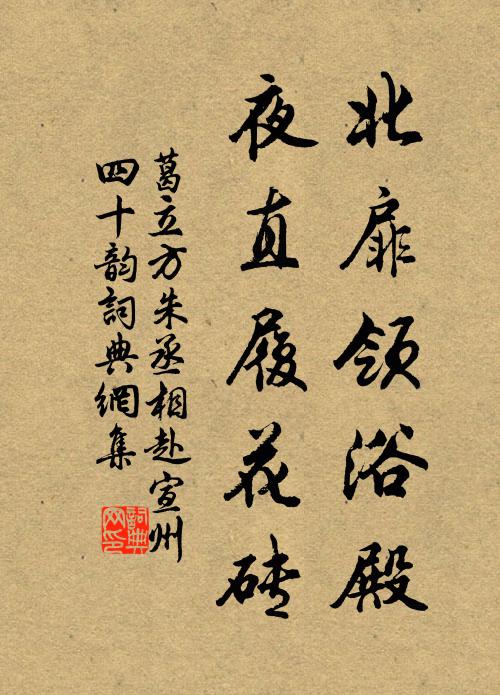 北扉领浴殿
夜直履花砖
葛立方朱丞相赴宣州
四十韵詞典網集
詞典网印